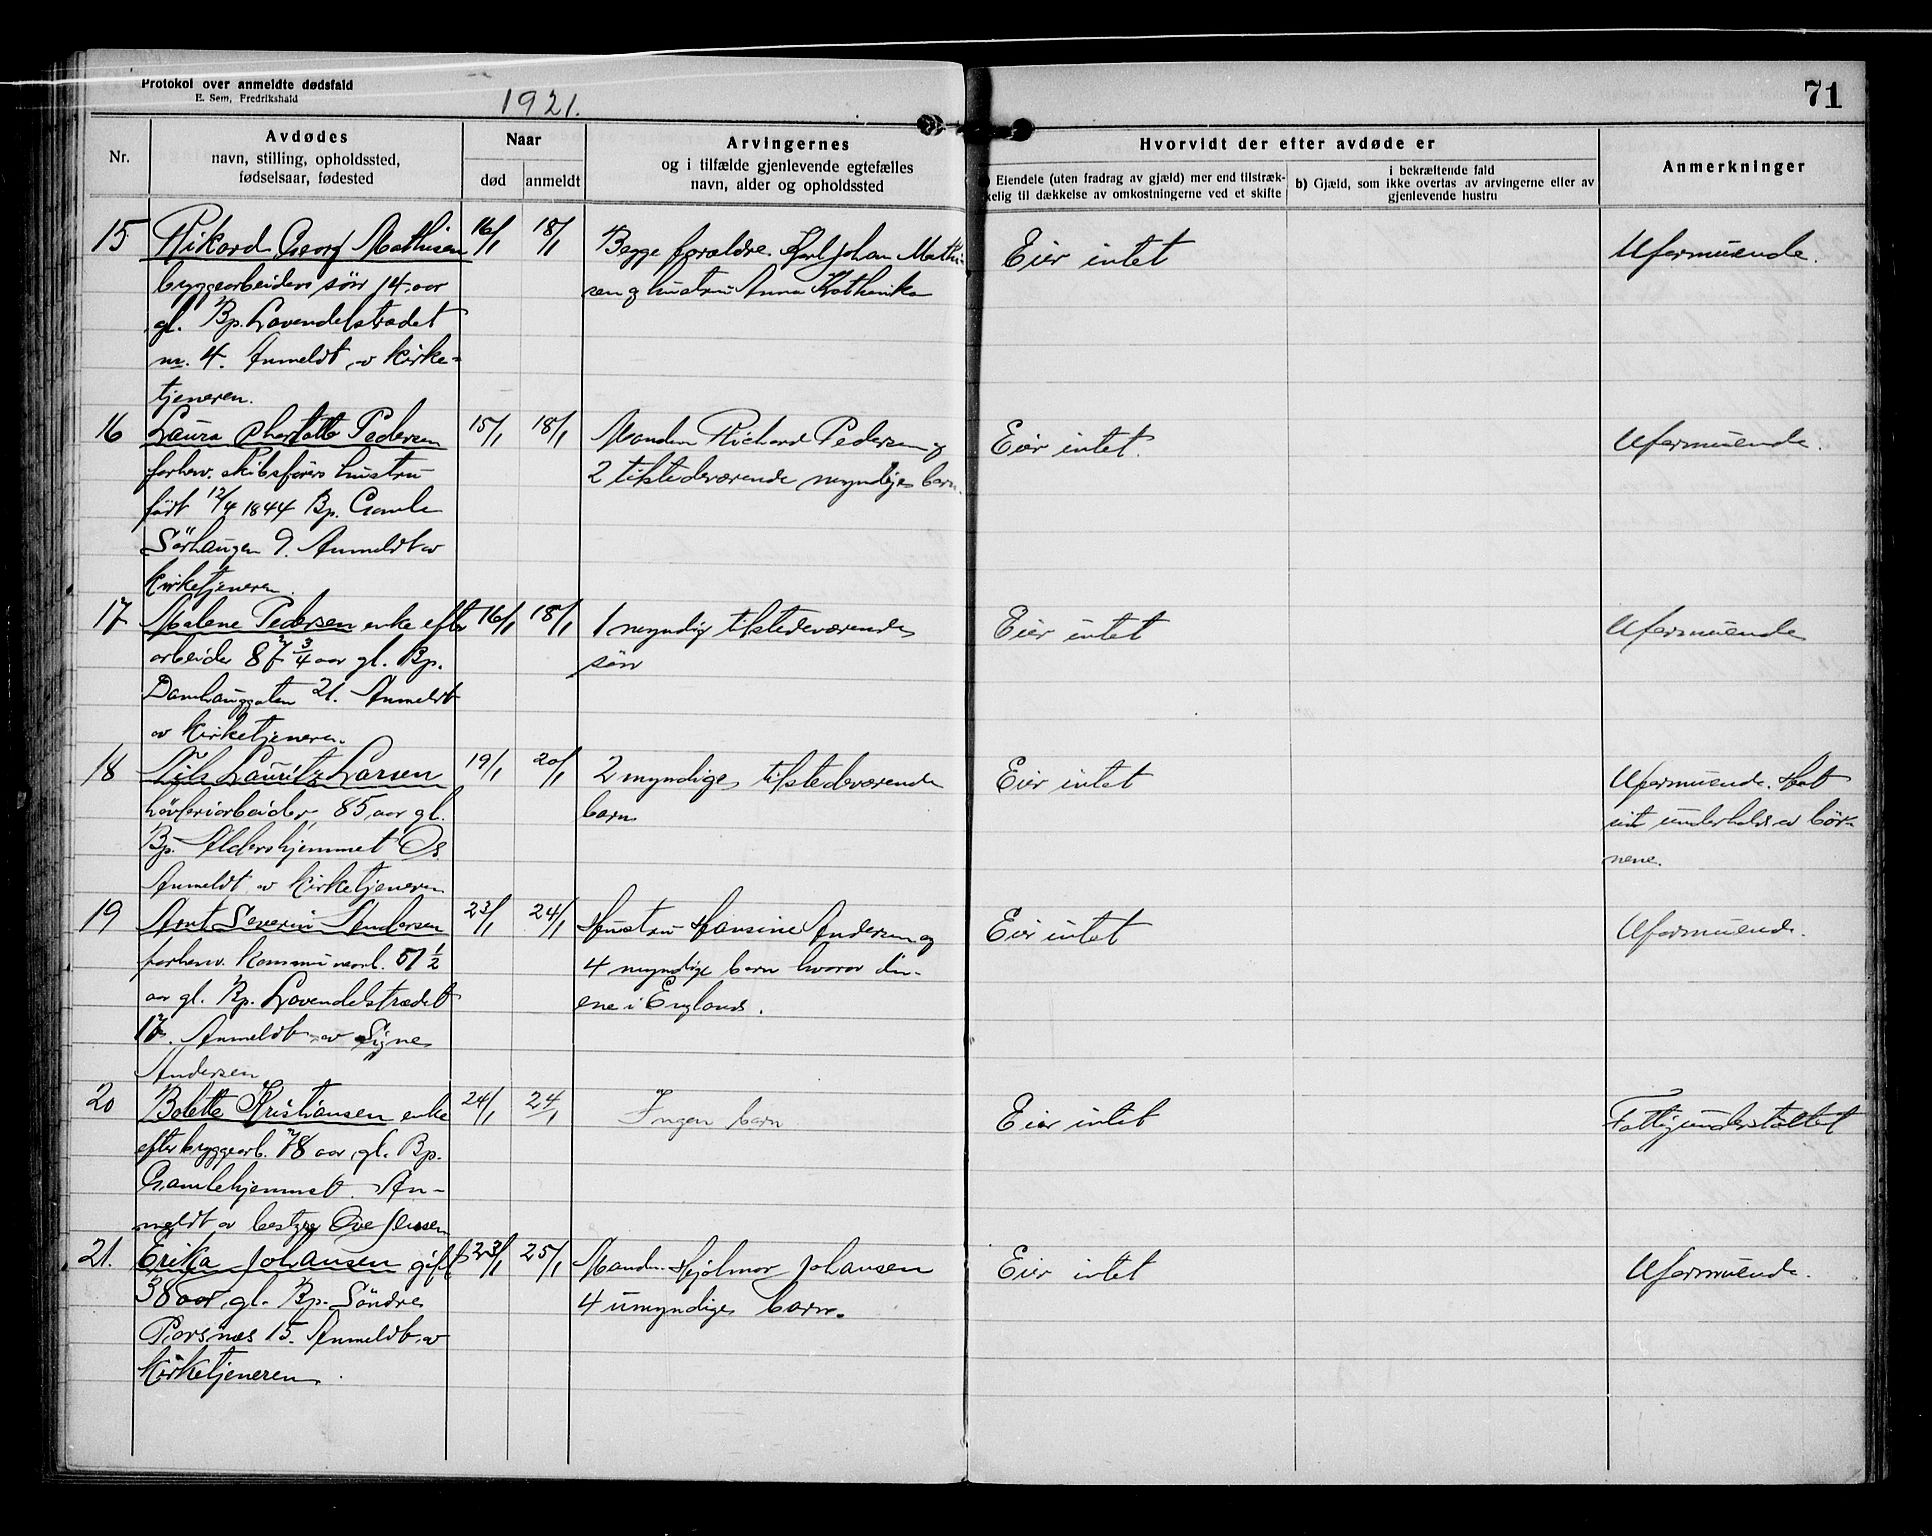 Protokol over anmeldte dødsfald
E. Sem, Fredrikshald
1921.
71
Nr.
Avdødes
navn, stilling, opholdssted,
fødselsaar, fødested
Naar
død
anmeldt
Arvingernes
og i tilfælde gjenlevende egtefælles
navn, alder og opholdssted
Hvorvidt der efter avdøde er
Eiendele (uten fradrag av gjæld) mer end tilstræk-
kelig til dækkelse av omkostningerne ved et skifte
i bekræftende fald
b) Gjæld, som ikke overtas av arvingerne eller av
gjenlevende hustru
Anmerkninger
15
Rikard Georg Mathisen
bryggearbeiders søn 14 aar
gl. Bp. Lavendelstrædet
nr. 4. Anmeldt av kirke-
tjeneren.
16/1
18/1
Begge forældre. Karl Johan Mathi-
sen og hustru Anna Katharika
Eier intet
Uformuende.
16
Laura Charlotte Pedersen
forhenv. skibsførers hustru
født 12/4 1844 Bp. Gamle
Sörhaugen 9. Anmeldt av
kirketjeneren.
15/1
18/1
Manden Richard Pedersen og
2 tilstedeværende myndige barn.
Eier intet.
Uformuende.
17
Malene Pedersen enke efter
arbeider 87 3/4 aar gl. Bp.
Damhauggaten 21. Anmeldt
av kirketjeneren.
16/1
18/1
1 myndig tilstedeværende
søn
Eier intet
Uformuende
18
Nils Lauritz Larsen
høvleriarbeider, 85 aar gl.
Bp. Aldershjemmet Os
Anmeldt av kirketjeneren
19/1
20/1
2 myndige tilstedeværende
barn
Eier intet
Uformuende. Hat
sit underhold av bör-
nene.
19
Arnt Severin Andersen
forhenv. kommunearb. 51 1/2
aar gl. Bp. Lavendelstrædet
17. Anmeldt av Signe
Andersen
23/1
24/1
Hustru Hansine Andersen og
4 myndige barn hvorav din-
ene i England.
Eier intet
Uformuende.
20
Bolette Kristiansen enke
efter bryggearb. 78 aar gl. Bp.
Gamlehjemmet. An-
meldt av bestyrer Ove Jensen
24/1
24/1
Ingen barn
Eier intet
Fattigunderstøttet
21.
Erika Johansen gift
38 aar gl. Bp. Söndre
Porsnæs 15. Anmeldt av
kirketjeneren.
23/1
25/1
Manden Hjalmar Johansen
4 umyndige barn.
Eier intet
Uformuende.